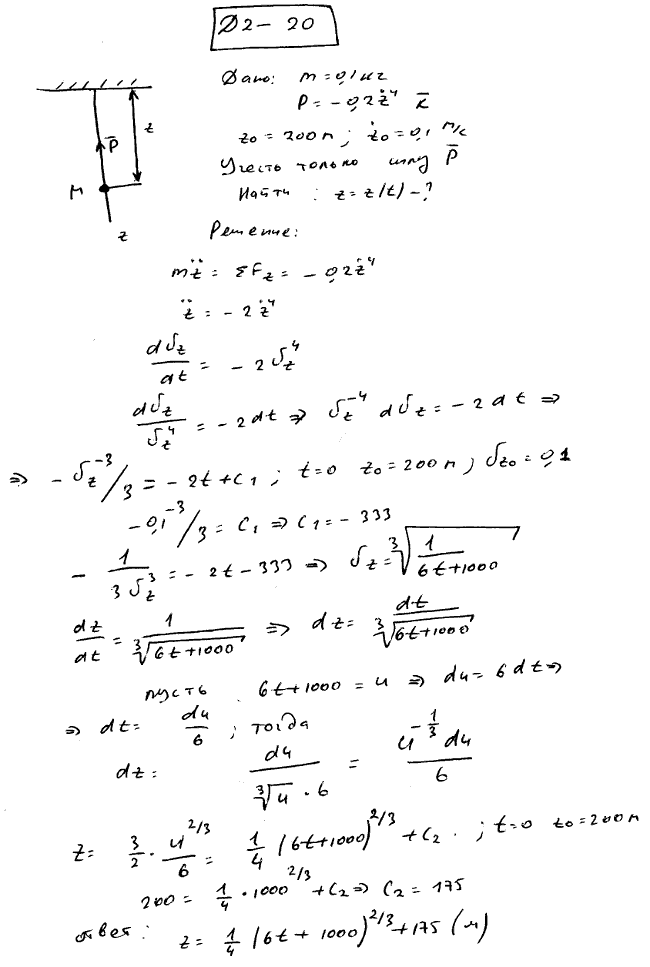 Д2 – 20
Дано: m = 0,1 кг
P = – 0,2 ż⁴ k̅
z₀ = 200 м ; ż₀ = 0,1 м/с
Учесть только силу P̅
Найти : z = z(t) – ?
z
P̅
M
z
Решение:
mz̈ = ΣF_z = – 0,2ż⁴
z̈ = – 2 ż⁴
dV_z/dt = – 2 V_z⁴
dV_z/V_z⁴ = – 2dt ⇒ V_z⁻⁴ dV_z = – 2 dt ⇒
⇒ – V_z⁻³/3 = – 2t + C₁ ; t=0 z₀ = 200 м ; V_z₀ = 0,1
– 0,1⁻³/3 = C₁ ⇒ C₁ = – 333
– 1/(3V_z³) = – 2t – 333 ⇒ V_z = ∛(1/(6t+1000))
dz/dt = 1/∛(6t+1000) ⇒ dz = dt/∛(6t+1000)
пусть 6t+1000 = u ⇒ du = 6dt ⇒
⇒ dt = du/6 ; тогда
dz = du/(∛u · 6) = u^(-1/3) du/6
z = 3/2 · u^(2/3)/6 = 1/4 (6t+1000)^(2/3) + C₂ . ; t=0 z₀=200 м
200 = 1/4 · 1000^(2/3) + C₂ ⇒ C₂ = 175
ответ : z = 1/4 (6t + 1000)^(2/3) + 175 (м)